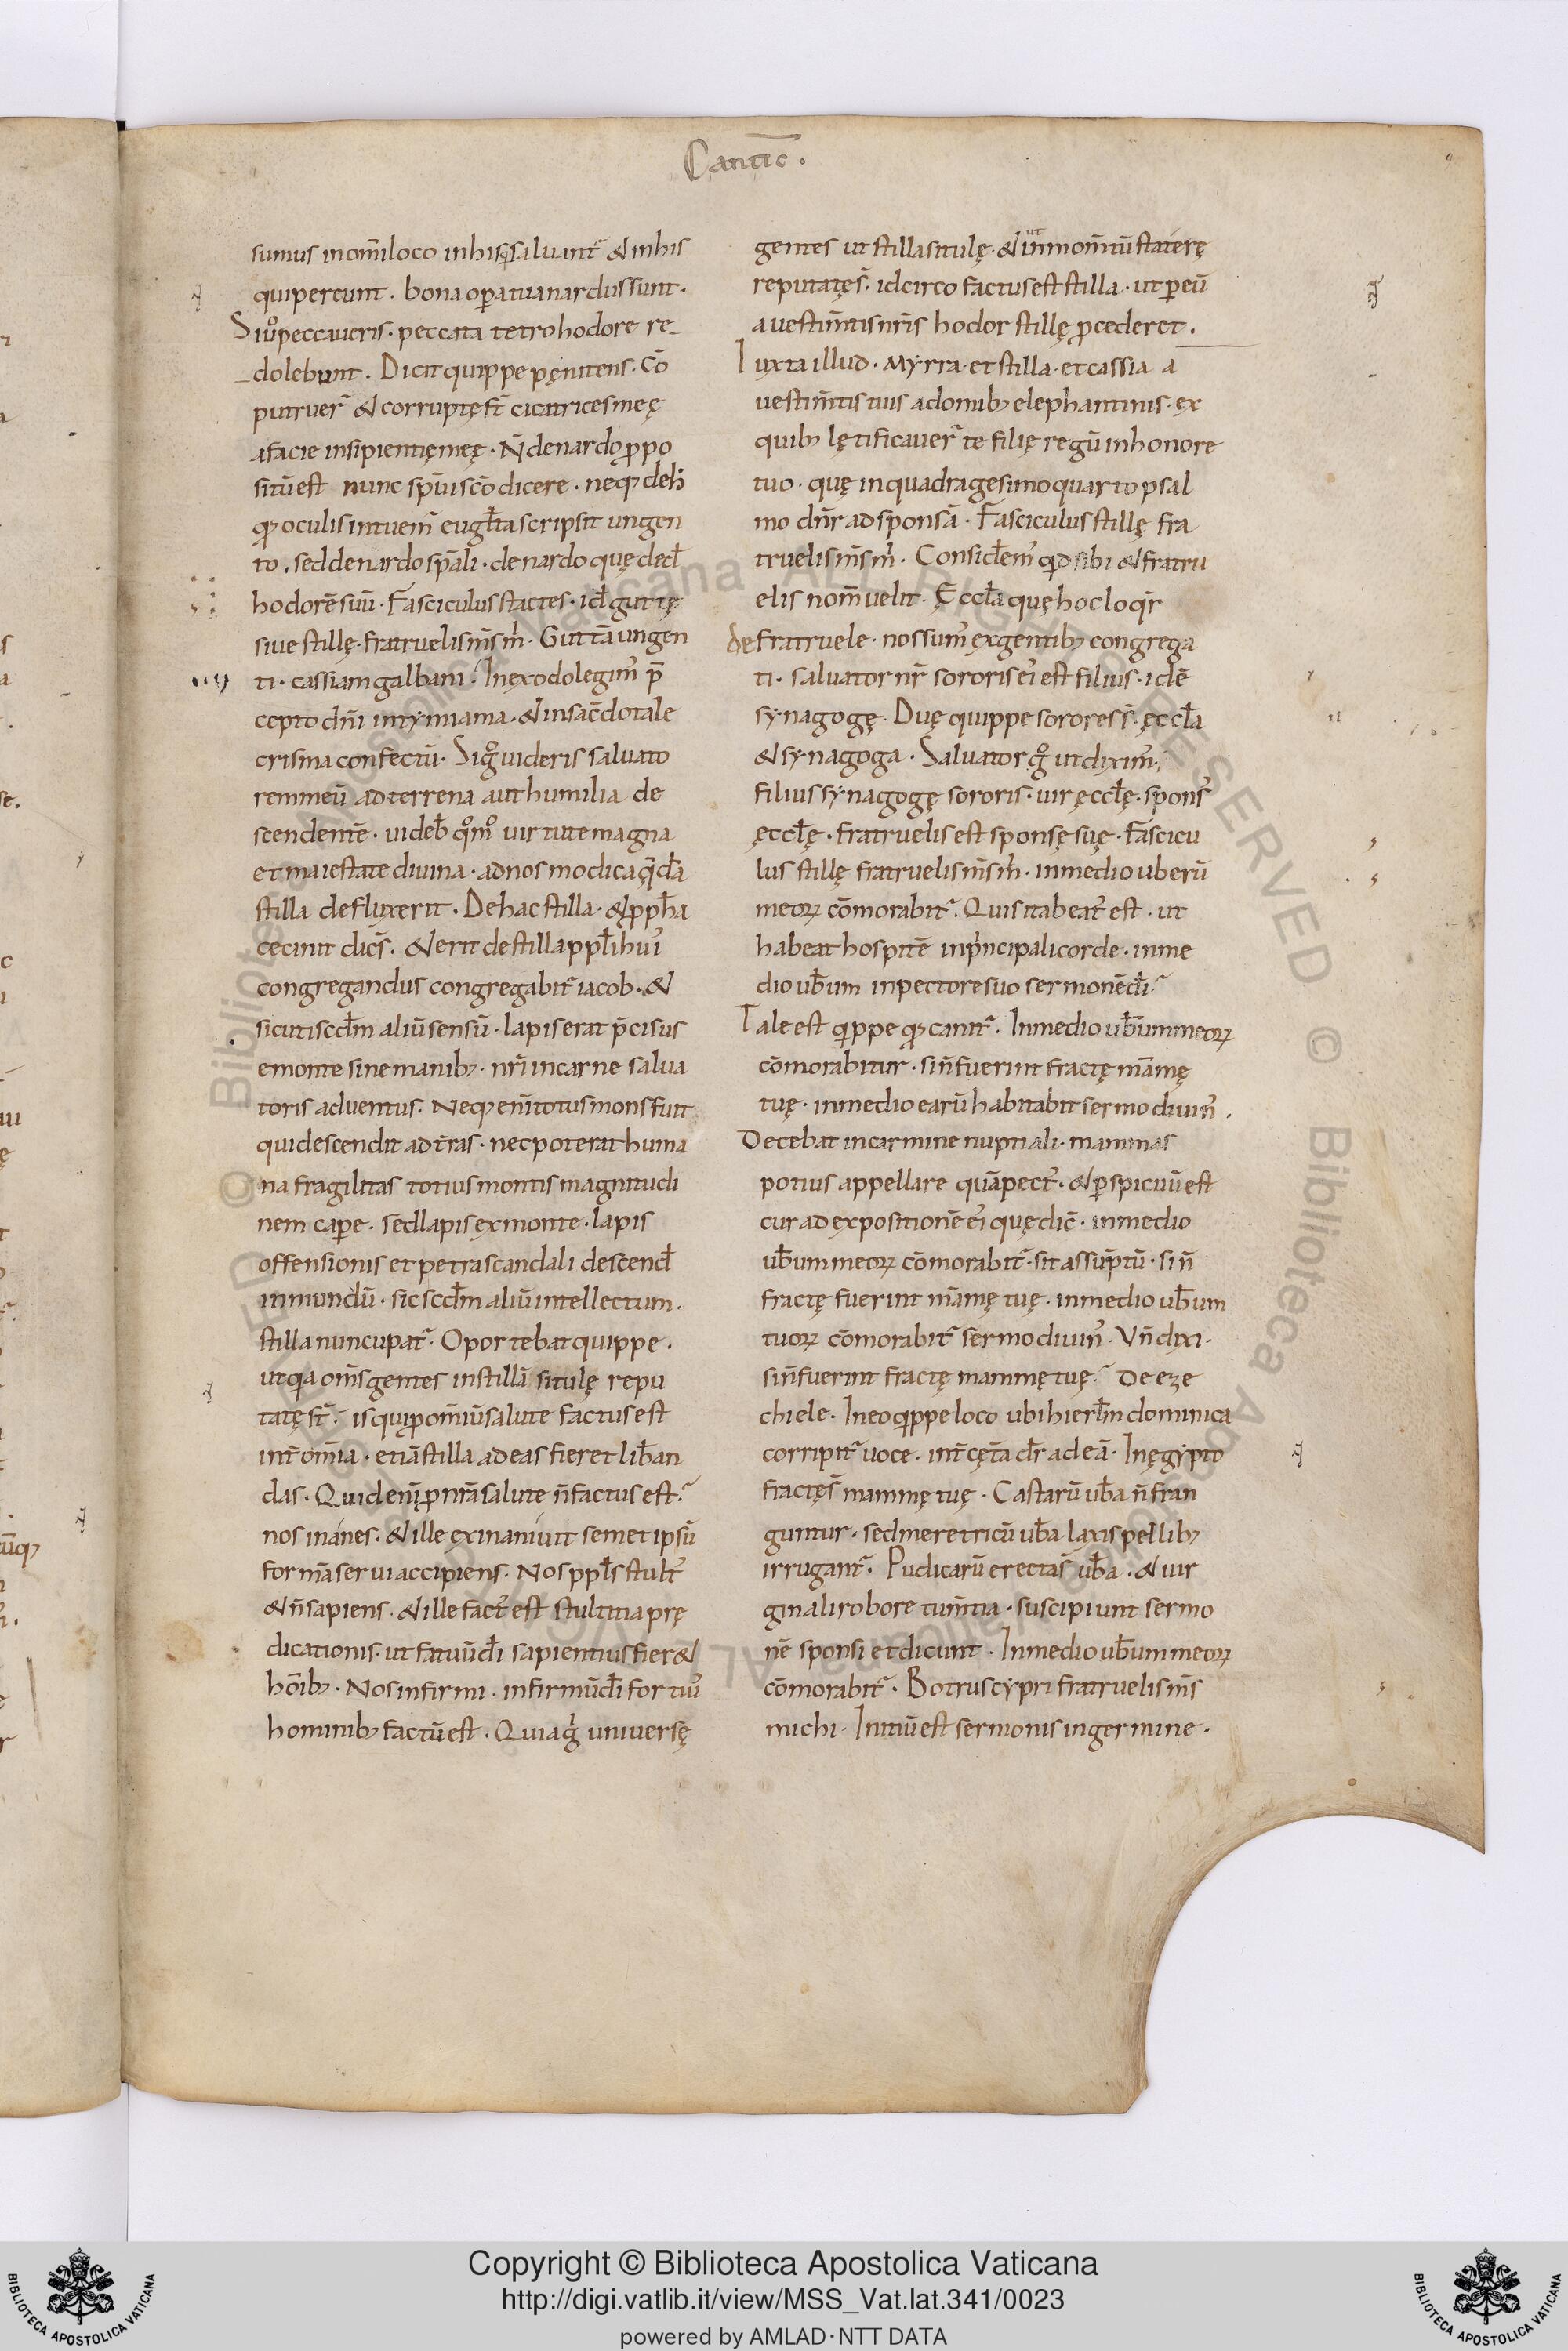 Cantic̄.
sumus inom̄iloco inhisq̇saluant᷑ & inhis
quipereunt. bonaoꝑatuanardussunt.
Siu᷑opeccaueris. peccata tetrohodore re
dolebunt. Dicit quippe pęnitens. Cō
putruer᷑ & corruptęst̄ cicatricesmeę
afacie insipientięmeę. N̄denardoꝓpo
sitūest nunc sp̄uiscōdicere. neqꝫ deh
qꝫ oculisintuem᷑ euḡlistascripsit ungen
to. seddenardosp̄ali. denardo quędedꝉ
hodorēsuū. Fasciculusstactes. idꝉguttę
siuestillę. fratruelism̄sm̄. Guttāungen
ti. cassiamgalbani. Inexodolegim᷑ p̄
ceptodn̄i intymiama. &insac̄dotale
crismaconfectū. Sigͦuideris saluato
remmeū adterrena authumilia de
scendentē. uidebꝉ qͦmͦ uirtutemagna
etmaiestatediuina. adnosmodicaq̄dā
stilla defluxerit. Dehacstilla. &ꝓpꝉha
cecinit dic̄s. &erit destillappꝉihui᷑
congregandus congregabit᷑iacob. &
sicutiscdꝉm aliūsensū. lapiserat p̄cisus
emontesinemanibꝫ. nr̄iincarne salua
toris aduentus. Neqꝫenī totusmonsfuit
quidescendit adtr̄as. necpoterathuma
na fragilitas totiusmontismagnitudi
nem caꝑe. sedlapisexmonte. lapis
offensionis etpetrascandali descendꝉ
inmundū. sicscdꝉm aliūintellectum.
stillanuncupat᷑. Oportebatquippe.
utqͥa om̄sgentes instillā situlę repu
tatęst̄. isquiꝓom̄iūsalute factusest
int̄omīa. etiāstilla adeas fieretlibꝉan
das. Quidenīꝓnr̄āsalute n̄factusest.
nosinánes. &ille exinaníuit semetipsū
formāseruiaccipiens. Nosppꝉsstult᷑
&n̄sapiens. &illefact᷑est stultitiaprę
dicationis. utfatuūdꝉi sapientiusfier&
hōibꝫ. Nosinfirmi. infirmūdꝉifortiu᷑
hominibꝫfactūest. Quiagͥ universę
gentes utstillasitulę. &utinmom̄tūstaterę
reputatęs̄. idcircofactuseststilla. utꝑeū
auestim̄tisnr̄is hodor stillę ꝓcederet.
Iuxtaillud. Myrra. etstilla. etcassia a
uestim̄tistuis adomibꝫelephantinis. ex
quibꝫ lętificauer᷑te filię regūinhonore
tuo. quę inquadragesimoquartopsal
mo dn̄r adsponsā. Fasciculusstillę fra
truelism̄sm̄. Considꝉem᷑ qͥdsibi &fratru
elis nom̄uelit. Ecclꝉaquęhocloqr̄
defratruele. nossum᷑exgentibꝫcongrega
ti. saluatornr̄ sororisei᷑estfilius. idē
synagogę. Duę quippesororess̄. ęcclꝉa
&synagoga. Saluatorgͦ utdixim᷑.
filiussynagogę sororis. uiręcclꝉę. spons᷑
ęcclꝉę. fratruelisestsponsęsuę. Fascicu
lus stillę fratruelism̄sm̄. inmedio uberū
meoꝝ cōmorabit᷑. Quisitabeat᷑est. ut
habeathospitē inpͥncipalicorde. inme
dioubꝉum inpectoresuo sermonēdꝉi.
Tale est qͥppe qꝫcanit᷑. Inmedioubꝉummeoꝝ
cōmorabitur. sin̄fuerint fractęmāmę
tuę. inmedio earūhabitabit sermo diuin᷑.
Decebat incarmine nuptiali. mammas
potius appellare quāpect᷑. &ꝑspicuūest
curadexpositionēei᷑quędic̄. inmedio
ubꝉummeoꝝ cōmorabit᷑. sit assūptū. sin̄
fractę fuerint māmę tuę. inmedio ubꝉum
tuoꝝ cōmorabit᷑ sermodiuin᷑. Vn̄dixi.
sin̄fuerint fractę mammętuę. De eze
chiele. Ineoqͥppeloco ubihierlꝉm dominica
corripit᷑uoce. int̄cęt̄a dr̄adeā. Inęgypto
fractęs̄ mammętuę. Castarū ubꝉa n̄fran
guntur. sedmeretricū ubꝉa laxispellibꝫ
irrugant᷑. Pudicarūerectas̄ ubꝉa. &uir
ginalirobore tum̄tia. suscipiunt sermo
nē sponsi etdicunt. Inmedioubꝉummeoꝝ
cōmorabit᷑. Botruscypri fratruelism̄s
michi. Initiūest sermonis ingermine.
Copyright © Biblioteca Apostolica Vaticana
http://digi.vatlib.it/view/MSS_Vat.lat.341/0023
powered by AMLAD·NTT DATA
BIBLIOTECA APOSTOLICA VATICANA
BIBLIOTECA APOSTOLICA VATICANA